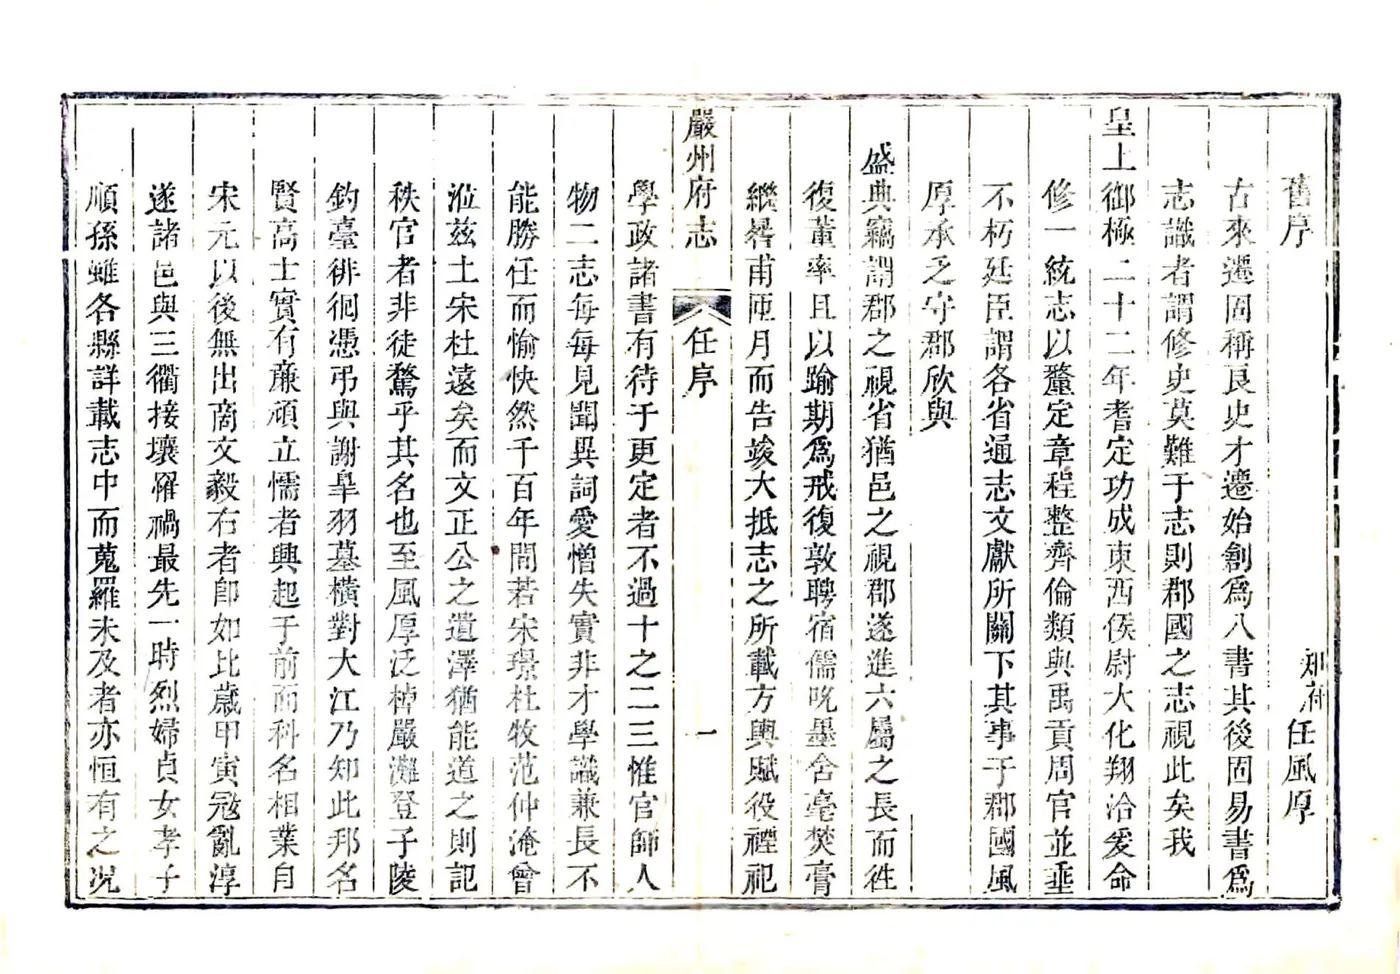 舊序
知府任風厚
古來遷固稱良史才遷始創爲八書其後固易書爲
志識者謂修史莫難于志則郡國之志視此矣我
皇上御極二十二年耆定功成東西侯尉大化翔洽爰命
修一統志以釐定章程整齊倫類與禹貢周官並垂
不朽廷臣謂各省通志文獻所關下其事于郡國風
厚承乏守郡欣與
盛典竊謂郡之視省猶邑之視郡遂進六屬之長而徃
復董率且以踰期爲戒復敦聘宿儒吮墨含毫焚膏
繼晷甫匝月而告竣大抵志之所載方輿賦役禋祀
嚴州府志
任序
一
學政諸書有待于更定者不過十之二三惟官師人
物二志每每見聞異詞愛憎失實非才學識兼長不
能勝任而愉快然千百年間若宋璟杜牧范仲淹曾
涖兹土宋杜遠矣而文正公之遺澤猶能道之則記
秩官者非徒騖乎其名也至風厚泛棹嚴灘登子陵
釣臺徘徊憑弔與謝臯羽墓橫對大江乃知此邦名
賢高士實有廉頑立懦者興起于前而科名相業自
宋元以後無出商文毅右者卽如比歲甲寅寇亂淳
遂諸邑與三衢接壤罹禍最先一時烈婦貞女孝子
順孫雖各縣詳載志中而蒐羅未及者亦恒有之况